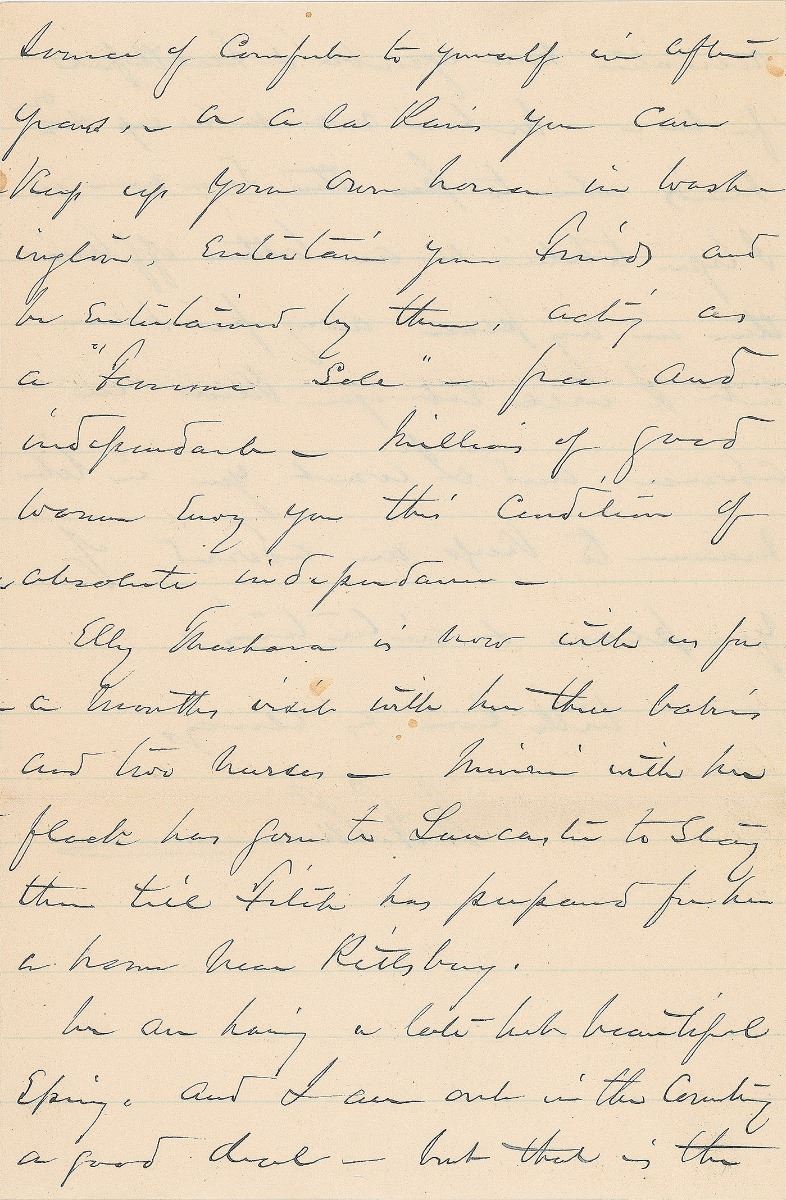 source of Comfort to yourself in after
years, - or a la Paris you can
Keep up your own house in Wash-
ington, Entertain your Friends and
be Entertained by them, acting as
a "Femme Sole" - free and
independent - Millions of good
women Envy you this Condition of
absolute independence -
Elly Thackara is now with us for
a months visit with her three babies
and two nurses - Minnie with her
flock has gone to Lancaster to Stay
there till Fitch has prepared for her
a home near Pittsburg.
We are having a late but beautiful
Spring. and I am out in the Country
a good deal - but that is the